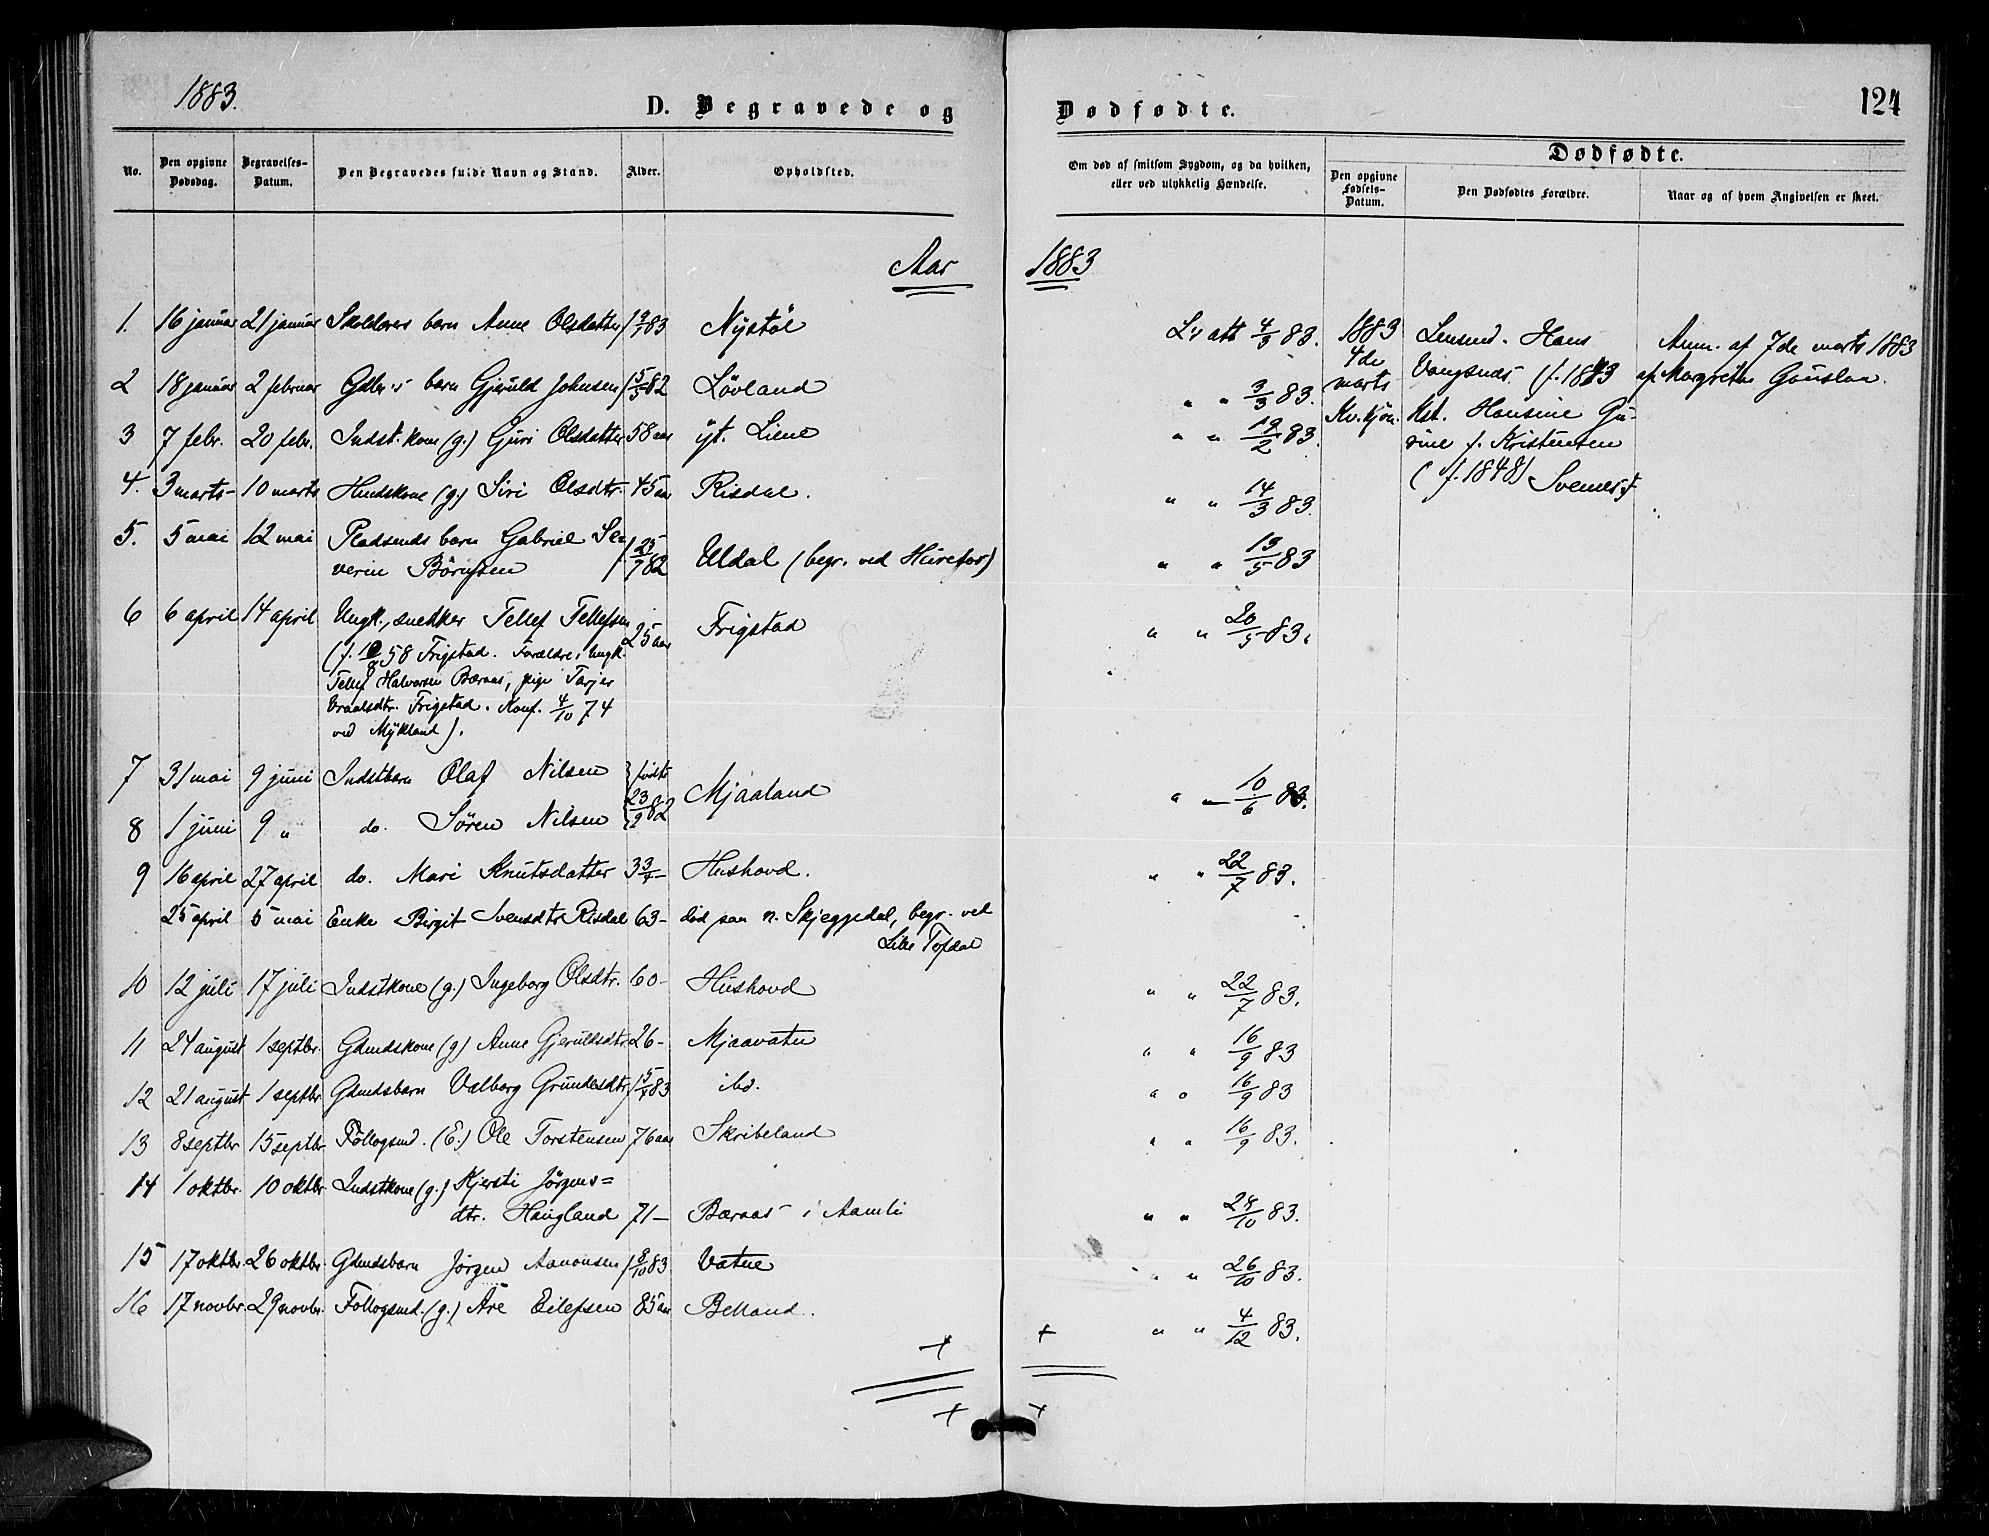 1883.
D. Begravede og
Dødfødte.
124
No.
Den opgivne Dødsdag.
Begravelses-Datum.
Den Begravedes fulde Navn og Stand.
Alder.
Opholdsted.
Om død af smitsom Sygdom, og da hvilken,
eller ved ulykkelig Hændelse.
Dødfødte.
Den opgivne Fødsels-Datum.
Den Dødfødtes Forældre.
Naar og af hvem Angivelsen er skeet.
Aar 1883
1. 16 januar 21 januar Skolelærers barn Anne Olsdatter 83 Nystøl
att 4/3 83.
2 18 januar 2 februar Gdbr.s barn Gjeruld Johnsen 82 Lövland
" " 3/3 83.
3 7 febr. 20 febr. Indst. kone (g.) Guri Olsdatter 58 aar yt. Liene
" " 19/2 83.
4. 3 marts 10 marts Husmdskone (g.) Siri Olsdtr. 45 aar Risdal.
" " 14/3 83.
5. 5 mai 12 mai Pladsmds barn Gabriel Se-
verin 25/7 82 Uldal (begr. ved Herefos)
" " 13/5 83
6 6 april 14 april Ungk., snedker Tellef Tellefsen 25 aar Frigstad
" " 20/5 83.
58 Frigstad. Forældre: Ungk.
Tellef Halvorsen Bæraas, pige Tarjer
Frigstad. Konf. 4/10 74
ved Mykland).
7 31 mai 9 juni Indstbarn Olaf Nilsen
fødte 82 Mjaaland
" " 10/6 83.
8 1 juni 9 " do. Søren Nilsen
9 16 april 27 april do. Mari Knutsdatter Hushovd.
" " 22/7 83.
25 april 5 mai Enke Birgit Svensdtr. Risdal 63 - død paa n. Skjeggedal, begr. ved
Lille Tofdal
10 12 juli 17 juli Indstkone (g.) Ingeborg Olsdtr. 60 - Hushovd
" " 22/7 83.
11 24 august 1 septbr. Gdmdskone (g.) Anne Gjeruldsdtr. 26 - Mjaavatn
" " 16/9 83
12 21 august 1 septbr. Gdmdsbarn Valborg 83 ibd.
" " 16/9 83
13 8 septbr 15 septbr Föllogsmd. (E.) Ole Torstensen 76 aar Skribeland
" " 16/9 83.
14 1 oktbr. 10 oktbr Indstkone (g.) Kjersti Jörgens=
dtr. Haugland 71 - Bæraas i Aamli
" " 83.
15 17 oktbr. 26 oktbr. Gdmdsbarn Jörgen Aanonsen 8/10 83 Vatne
" " 26/10 83.
16 17 novbr. 29 novbr. Föllogsmd. (g.) Are Eilefsen 85 aar Belland.
" " 4/12 83.
1883
4de
marts
Kv. kjøn.
Hans
Vaagsnes
Hansine Gu-
rine f. Kristensen
(f. 1848)
Anm. af 7de marts 1883
af Margrethe